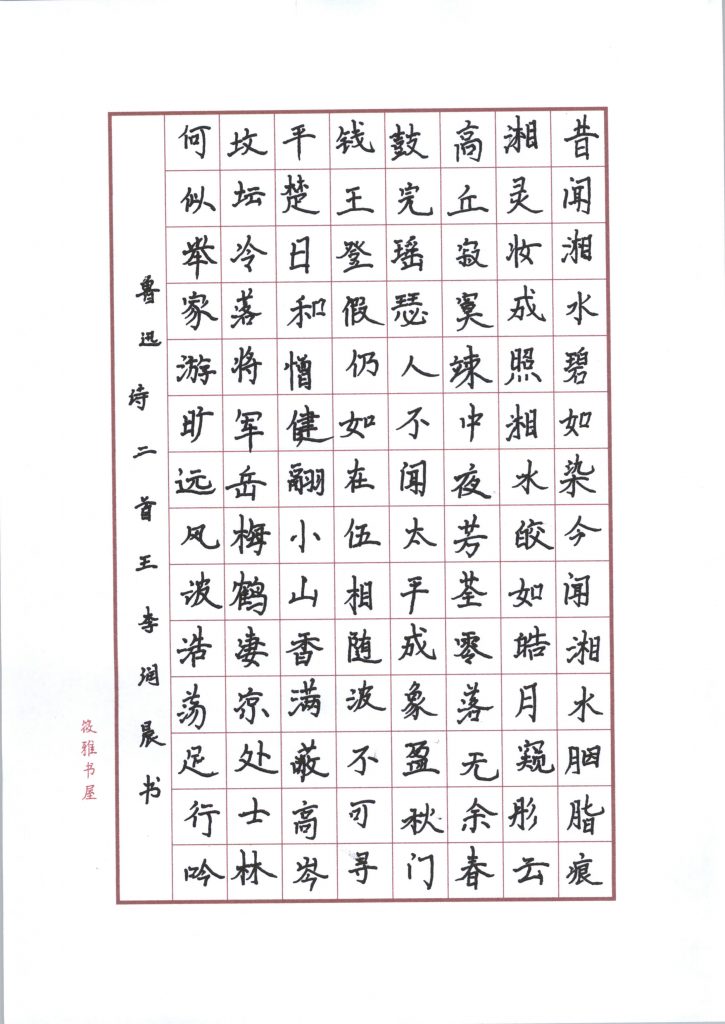 昔闻湘水碧如染今闻湘水胭脂痕
湘灵妆成照湘水皎如皓月窥彤云
高丘寂寞竦中夜芳荃零落无余春
鼓完瑶瑟人不闻太平成象盈秋门
钱王登假仍如在伍相随波不可寻
平楚日和憎健翮小山香满蔽高岑
坟坛冷落将军岳梅鹤凄凉处士林
何似举家游旷远风波浩荡足行吟
鲁迅诗二首王李润晨书
筱雅书屋